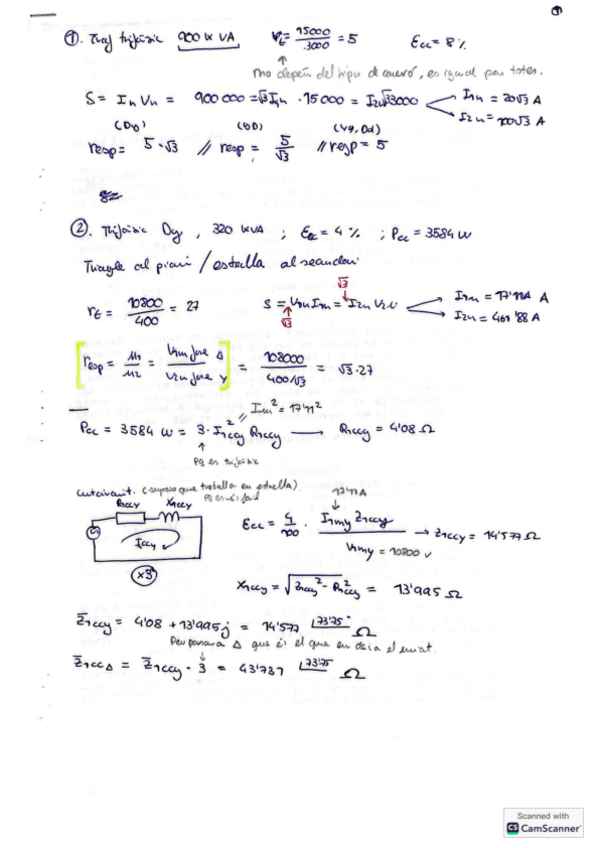 ①
①. Traf trifàsic 900 kVA rt = 15000/3000 = 5 Ecc = 8%
no depèn del tipus de conexió, es igual per totes.
S = In Vn = 900 000 = √3 I1n · 15 000 = I2n √3 3000 I1n = 20√3 A
I2n = 100√3 A
(Dy) (Yd) (Yy, Dd)
resp = 5·√3 // resp = 5/√3 // resp = 5
②. Trifàsic Dy, 320 kVA ; Ecc = 4% ; Pcc = 3584 W
Triangle al primari / estrella al secundari
√3
rt = 10800/400 = 27 S = V1n I1n = I2n V2n I1n = 17'11 A
I2n = 461'88 A
√3
[resp = M1/M2 = V1n fase Δ / V2n fase Y] = 108000 / 400/√3 = √3·27
// I1n² = 17'11²
Pcc = 3584 W = 3 · I1ccy² R1ccy → R1ccy = 4'08 Ω
Pq es trifàsic
Curtcircuit. (suposo que treballa en estrella)
Pq és més fàcil
R1ccy X1ccy
17'11 A
Ecc = 4/100 · I1ny Z1ccy / V1ny = 10800 V → Z1ccy = 14'577 Ω
I1ccy
X3
X1ccy = √Z1ccy² - R1ccy² = 13'995 Ω
Z1ccy = 4'08 + 13'995j = 14'577 ∠73'75° Ω
Per passar a Δ que és el que em deia el enunciat.
Z1ccΔ = Z1ccy · 3 = 43'737 ∠73'75 Ω
Scanned with
CS CamScanner